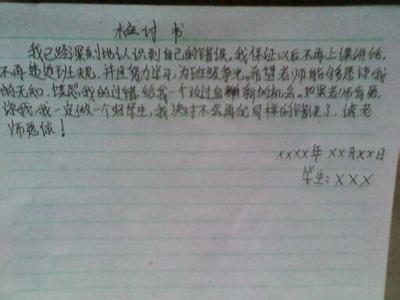 检讨书
我已经深刻地认识到自己的错误,我保证以后不再上课讲话,
不再违边班大规,并且努力学习,为班级争光。希望老师能够原谅我
的无知,饶恕我的过错给我一个改过自新的机会。如果老师肯原
谅我,我一定做一个好学生,我决对不会再犯同样的错误了,请老
师原谅!
xxxx年xx月xx日
学生:XXX